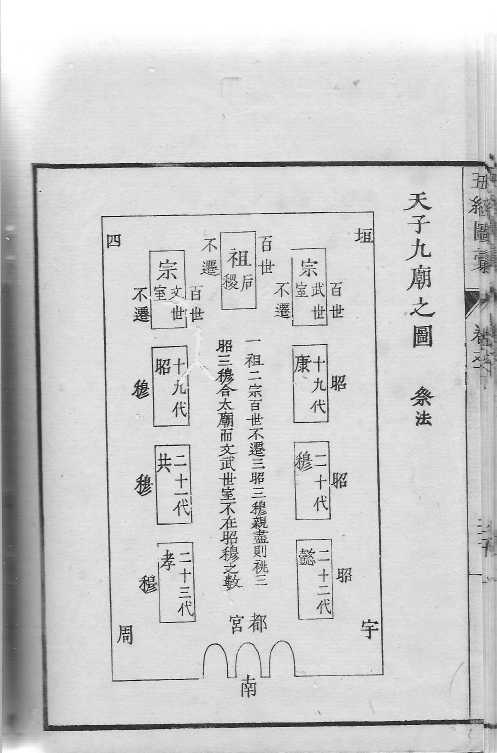 五經圖彙
天子九廟之圖
祭法
垣
宇
百世
不遷
宗
武世
室
昭
十九代
康
昭
二十代
穆
昭
二十二代
懿
百世
不遷
祖
后
稷
一祖二宗百世不遷三昭三穆親盡則祧三
昭三穆合太廟而文武世室不在昭穆之數
都宮
南
百世
不遷
宗
文世
室
十九代
昭
穆
二十一代
共
穆
二十三代
孝
穆
四
周